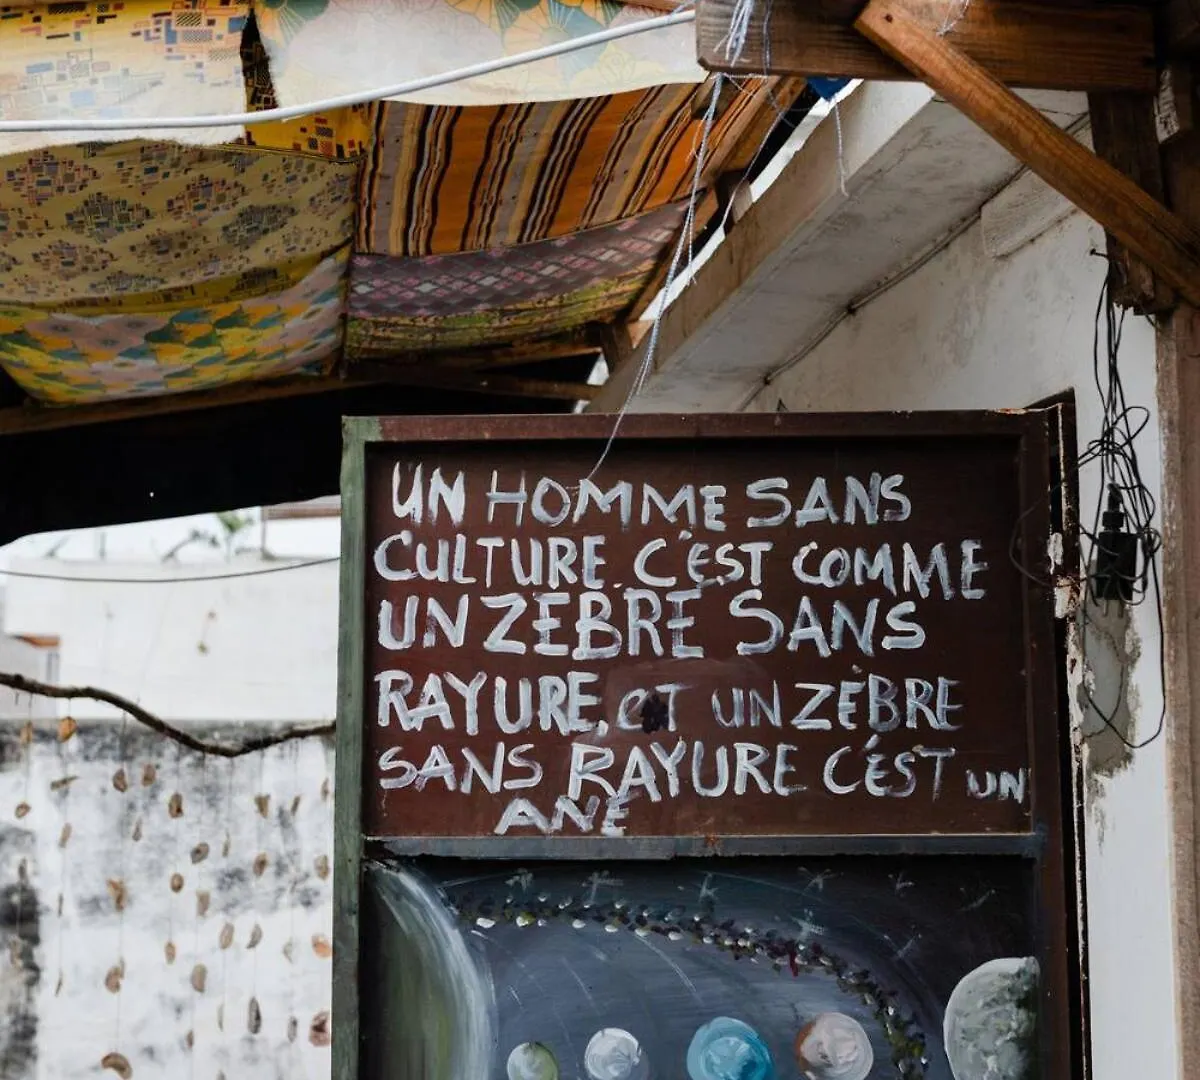 UN HOMME SANS
CULTURE C'EST COMME
UN ZÈBRE SANS
RAYURE, et UN ZÈBRE
SANS RAYURE C'EST UN
ANE